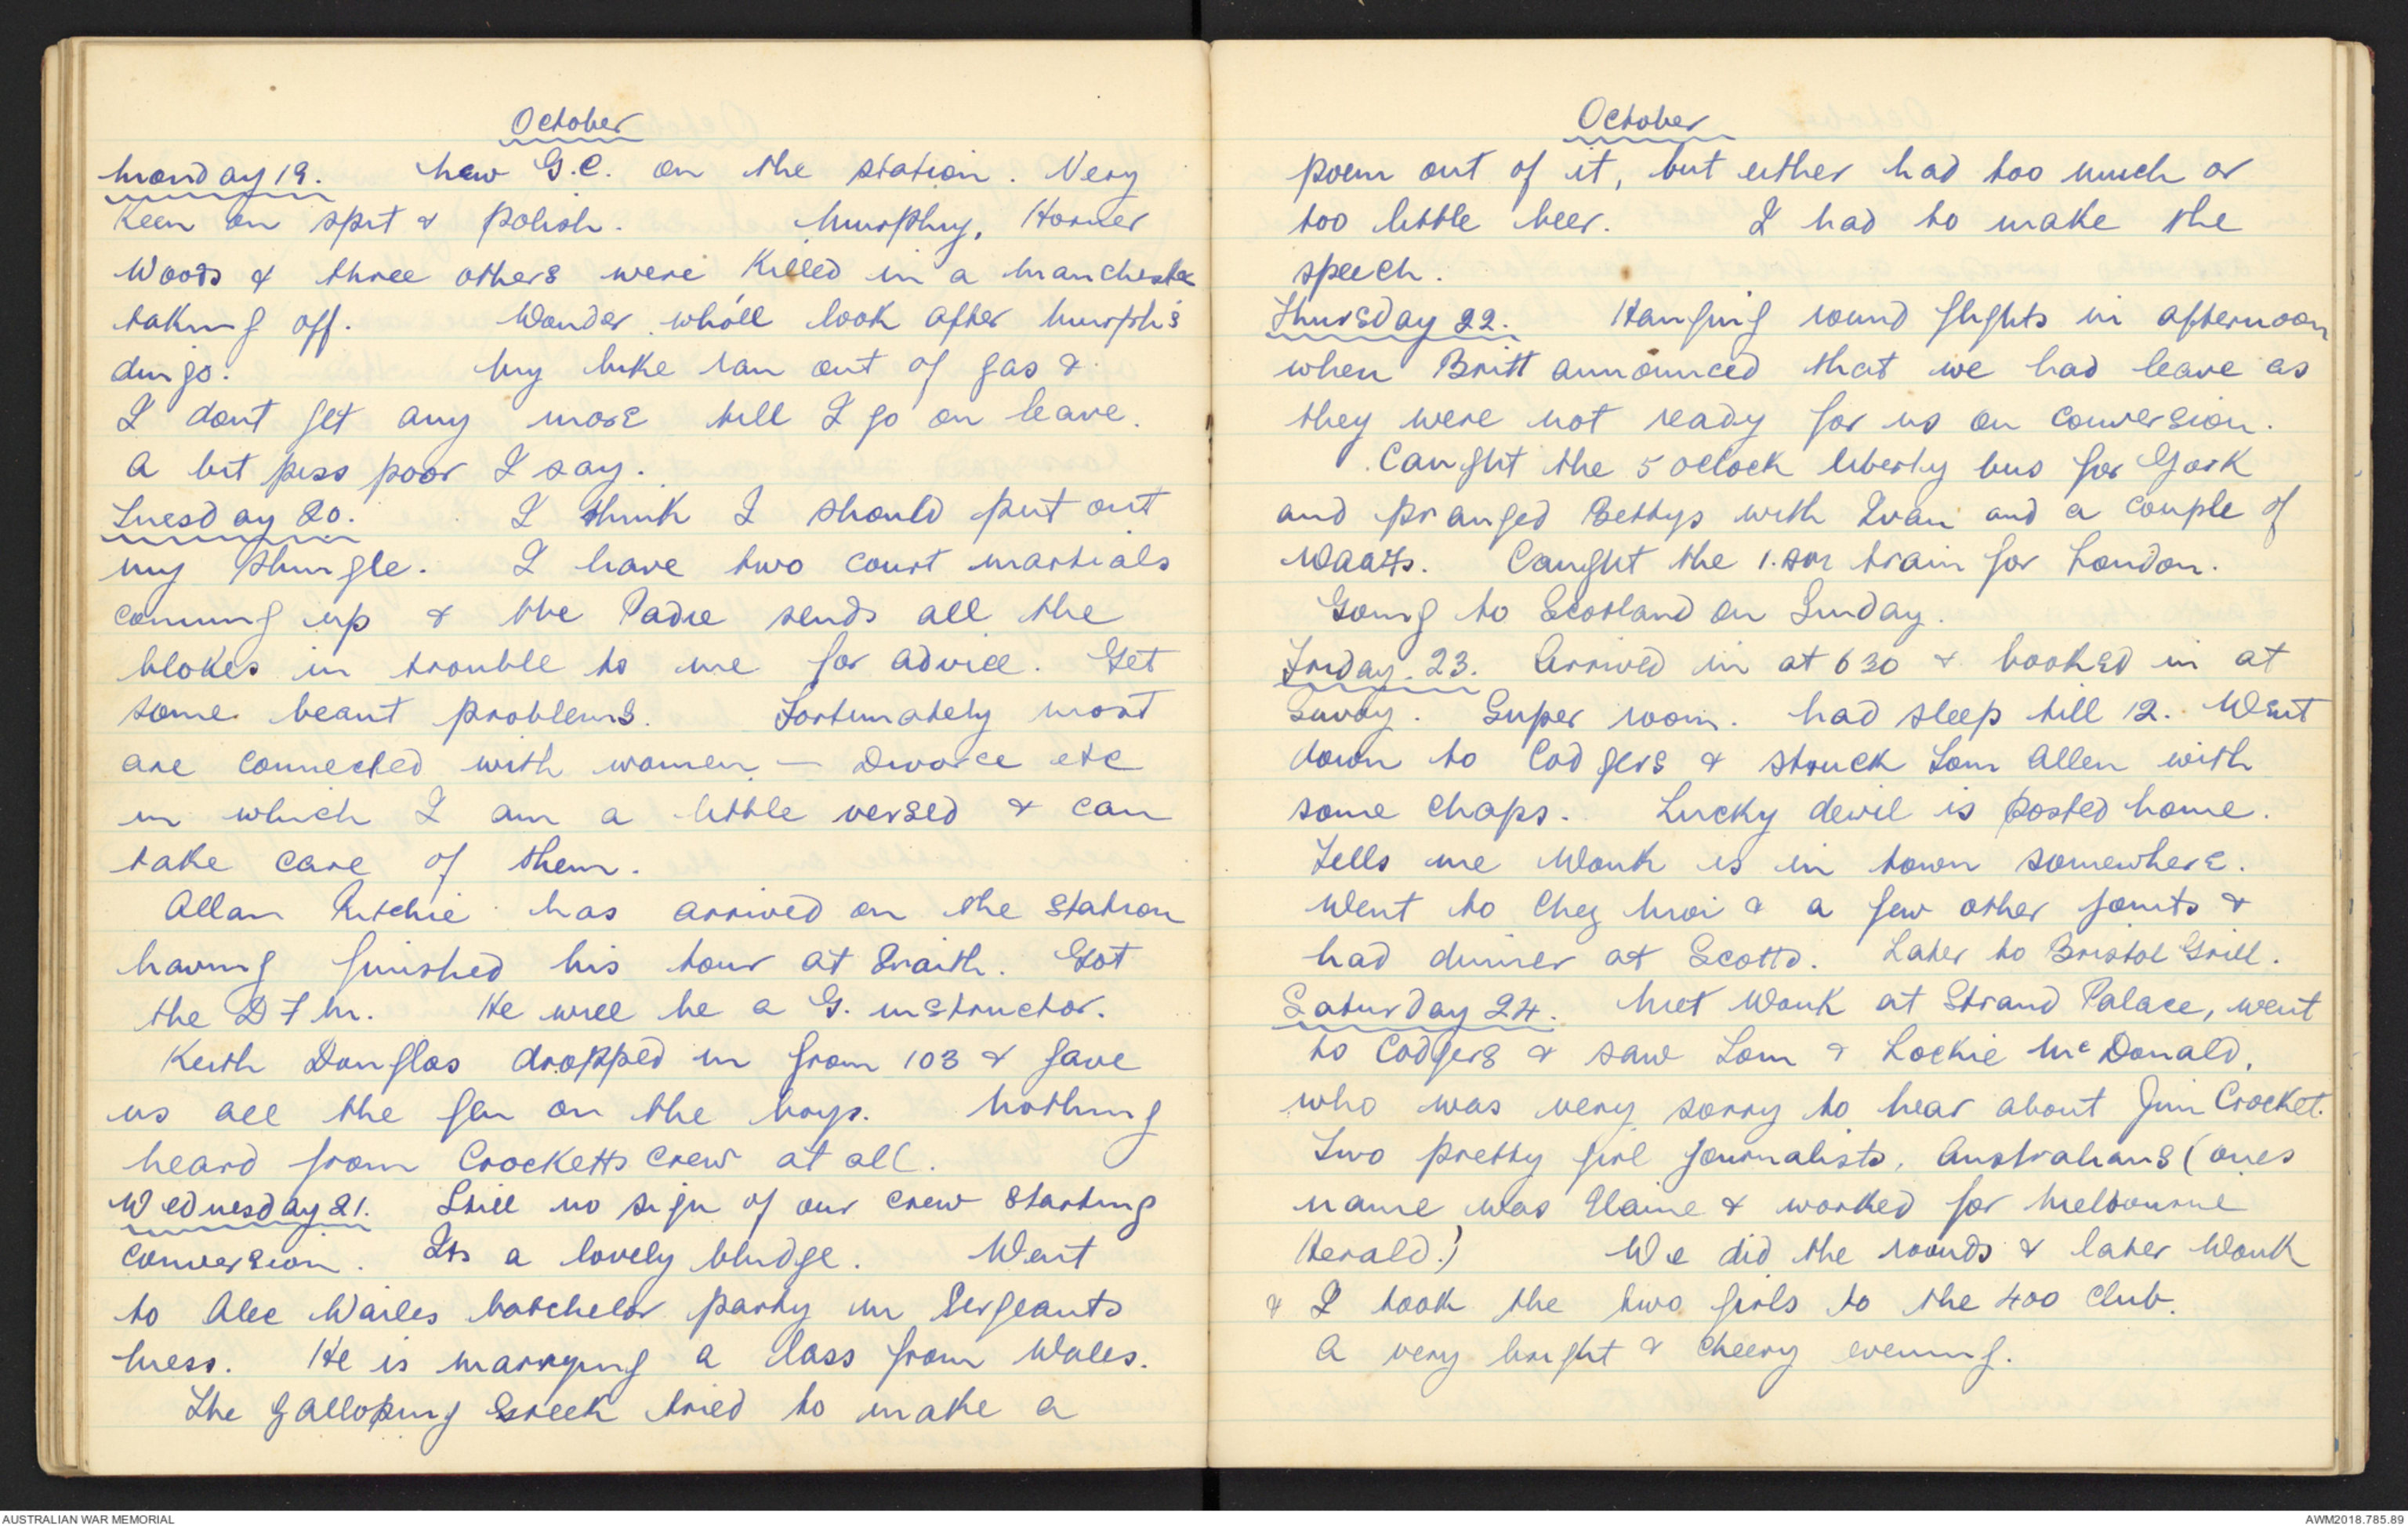 October
Monday 19. New G.C. on the station. Very
keen on spit & polish. Murphy, Horner
Woods & three others were killed in a Manchester
taking off. Wonder who'll look after Murph's
dingo. My bike ran out of gas &
I dont get any more till I go on leave.
A bit piss poor I say.
Tuesday 20. I think I should put out
my shingle. I have two court martials
coming up & the Padre sends all the
blokes in trouble to me for advice. Get
some beaut problems. Fortunately most
are connected with women — Divorce etc
in which I am a little versed & can
take care of them.
Allan Ritchie has arrived on the station
having finished his tour at Snaith. Got
the DFM. He will be a G. instructor.
Keith Douglas dropped in from 103 & gave
us all the gen on the boys. Nothing
heard from Crocketts crew at all.
Wednesday 21. Still no sign of our crew starting
conversion. Its a lovely bludge. Went
to Alec Wailes batchelor party in Sergeants
Mess. He is marrying a lass from Wales.
The Galloping Greek tried to make a
October
poem out of it, but either had too much or
too little beer. I had to make the
speech.
Thursday 22. Hanging round flights in afternoon
when Britt announced that we had leave as
they were not ready for us on conversion.
Caught the 5 oclock liberty bus for York
and pranged Bettys with Ivan and a couple of
Waafs. Caught the 1. am train for London.
Going to Scotland on Sunday.
Friday. 23. Arrived in at 630 & booked in at
Savoy. Super room. had sleep till 12. Went
down to Codgers & struck Tom Allen with
some chaps. Lucky devil is posted home.
Tells me Wonk is in town somewhere.
Went to Chez Moi & a few other joints &
had dinner at Scotts. Later to Bristol Grill.
Saturday 24. Met Wonk at Strand Palace, went
to Codgers & saw Tom & Lockie McDonald,
who was very sorry to hear about Jim Crocket.
Two pretty girl journalists, Australians (ones
name was Elaine & worked for Melbourne
Herald.) We did the rounds & later Wonk
& I took the two girls to the 400 Club.
A very bright & cheery evening.
AUSTRALIAN WAR MEMORIAL
AWM2018.785.89